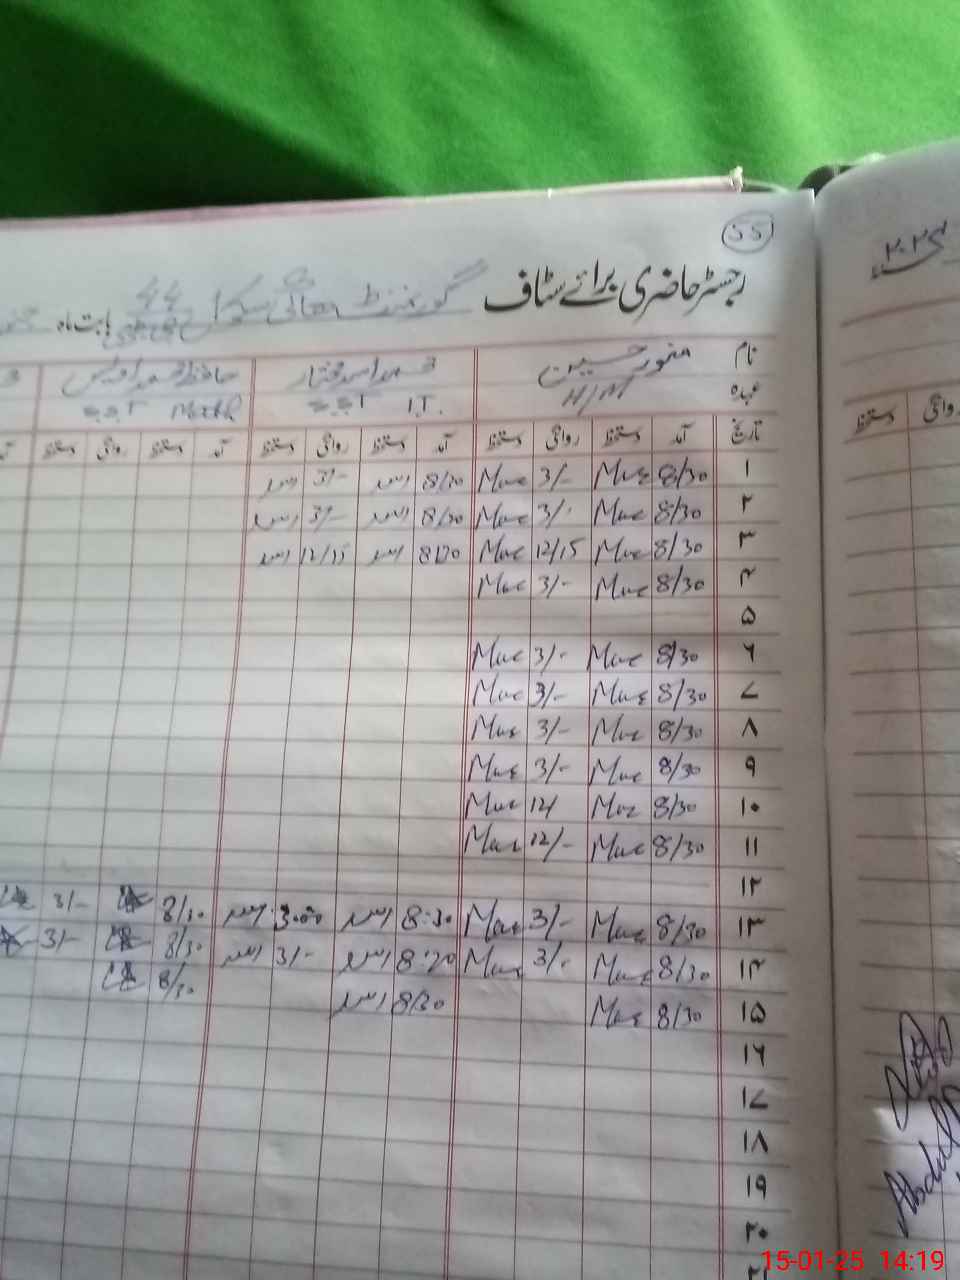 55
رجسٹر حاضری برائے سٹاف گورنمنٹ ہائی سکول بابت ماہ
نام منور حسین محمد اسد مختار حافظ محمد اویس
عہدہ H/M S.S.T I.T. S.S.T Math
تاریخ آمد دستخط روانگی دستخط آمد دستخط روانگی دستخط آمد دستخط روانگی دستخط
۱ 8/30 Mue 3/- Mue 8/30 اسد 3/- اسد
۲ 8/30 Mue 3/- Mue 8/30 اسد 3/- اسد
۳ 8/30 Mue 12/15 Mue 8/30 اسد 12/15 اسد
۴ 8/30 Mue 3/- Mue
۵
۶ 8/30 Mue 3/- Mue
۷ 8/30 Mue 3/- Mue
۸ 8/30 Mue 3/- Mue
۹ 8/30 Mue 3/- Mue
۱۰ 8/30 Mue 12/ Mue
۱۱ 8/30 Mue 12/- Mue
۱۲
۱۳ 8/30 Mue 3/- Mue 8:30 اسد 3:00 اسد 8/30 3/-
۱۴ 8/30 Mue 3/- Mue 8:20 اسد 3/- اسد 8/30 3/-
۱۵ 8/30 Mue 8/30 اسد 8/30
۱۶
۱۷
۱۸
۱۹
۲۰
۲۱
روانگی دستخط
Abdul
15-01-25 14:19